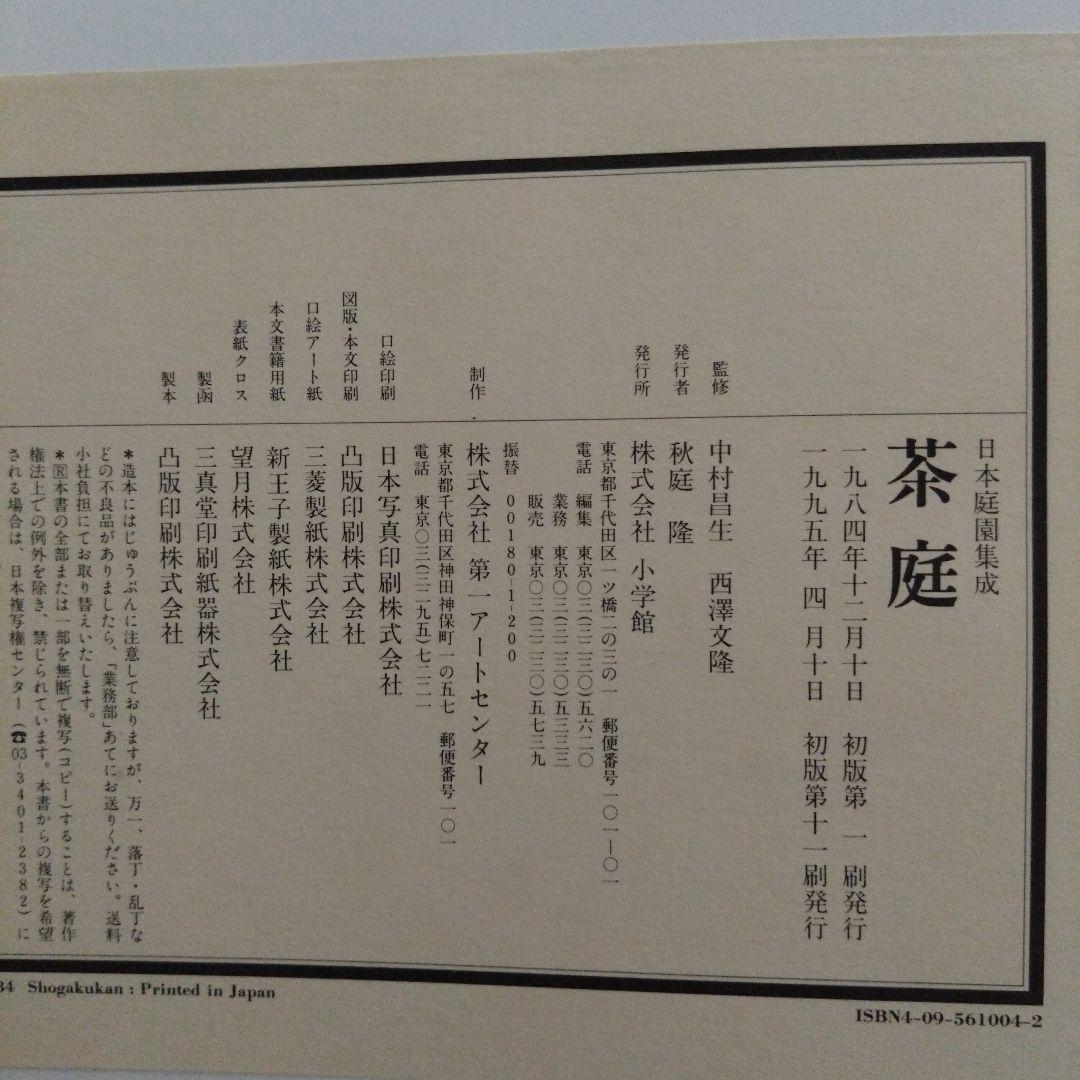 日本庭園集成
茶庭
一九八四年十二月十日　初版第　一　刷発行
一九九五年　四　月十日　初版第十一刷発行
監修　中村昌生　西澤文隆
発行者　秋庭　隆
発行所　株式会社　小学館
東京都千代田区一ツ橋二の三の一　郵便番号一〇一―〇一
電話　編集　東京〇三(三二三〇)五六二〇
業務　東京〇三(三二三〇)五三三三
販売　東京〇三(三二三〇)五七三九
振替　００１８０-１-２００
制作　株式会社　第一アートセンター
東京都千代田区神田神保町一の五七　郵便番号一〇一
電話　東京〇三(三二九五)七二二一
口絵印刷　日本写真印刷株式会社
図版・本文印刷　凸版印刷株式会社
口絵アート紙　三菱製紙株式会社
本文書籍用紙　新王子製紙株式会社
表紙クロス　望月株式会社
製函　三真堂印刷紙器株式会社
製本　凸版印刷株式会社
＊造本にはじゅうぶんに注意しておりますが、万一、落丁・乱丁な
どの不良品がありましたら、「業務部」あてにお送りください。送料
小社負担にてお取り替えいたします。
＊Ⓡ本書の全部または一部を無断で複写(コピー)することは、著作
権法上での例外を除き、禁じられています。本書からの複写を希望
される場合は、日本複写権センター(☎03-3401-2382)に
34 Shogakukan : Printed in Japan
ISBN4-09-561004-2